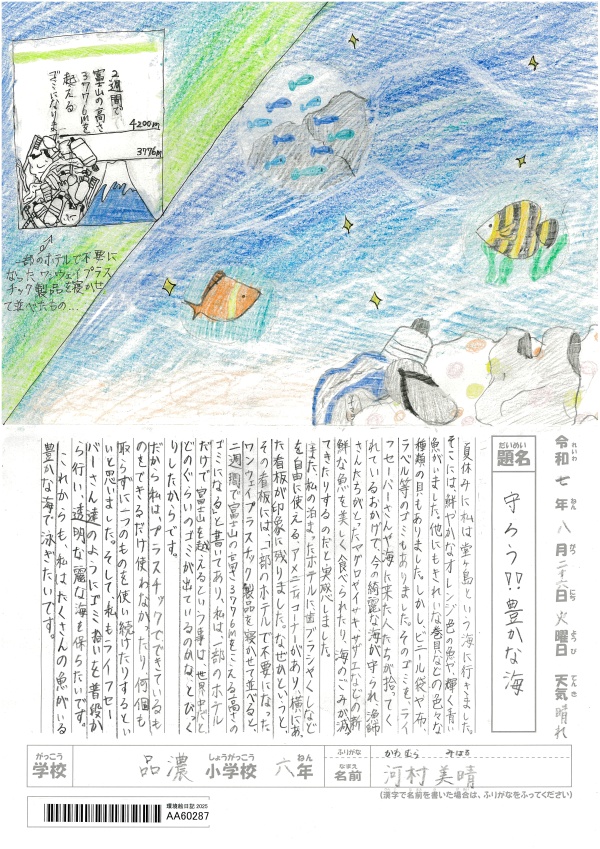 2週間で
富士山の高さ
3776mを
起える
ゴミになります
4200m
3776m
一部のホテルで不要に
なったワンウェイプラス
チック製品を寝かせ
て並べたもの…
令和七年八月二十六日火曜日天気晴れ
れいわ ねん がつ にち ようび てんき
だいめい
題名
守ろう!!豊かな海
夏休みに私は堂ヶ島という海に行きました。
そこには、鮮やかなオレンジ色の魚や輝く青い
魚がいました。他にもきれいな巻貝などの色々な
種類の貝もありました。しかし、ビニール袋や布、
ラベル等のゴミもありました。そのゴミを、ライ
フセーバーさんや海に来た人たちが拾ってく
れているおかげで、今の綺麗な海が守られ、漁師
さんたちがとったマグロやイサキ、サザエなどの新
鮮な魚を美しく食べられたり、海のごみが減っ
てきたりするのだと実感しました。
また、私の泊まったホテルに歯ブラシやくしなど
を自由に使える、アメニティコーナーがあり、横にあっ
た看板が印象に残りました。なぜかというと、
その看板には、「一部のホテルで不要になった
ワンウェイプラスチック製品を寝かせて並べると、
二週間で富士山の高さ3776mをこえる高さの
ゴミになると書いてあり、私は、一部のホテル
だけで富士山を越えるという事は、世界中だと
どのぐらいのゴミが出ているのかな、とびっく
りしたからです。
だから私は、プラスチックでできているも
のをできるだけ使わなかったり何個も
取らずに一つのものを使い続けたりするとい
いと思いました。そして、私もライフセー
バーさん達のようにゴミ拾いを普段か
ら行い、透明な綺麗な海を保ちたいです。
これからも、私はたくさんの魚がいる
豊かな海で泳ぎたいです。
がっこう しょうがっこう ねん
学校 品濃小学校 六年
ふりがな かわむら みはる
なまえ
名前 河村 美晴
(漢字で名前を書いた場合は、ふりがなをふってください)
環境絵日記2025
AA60287